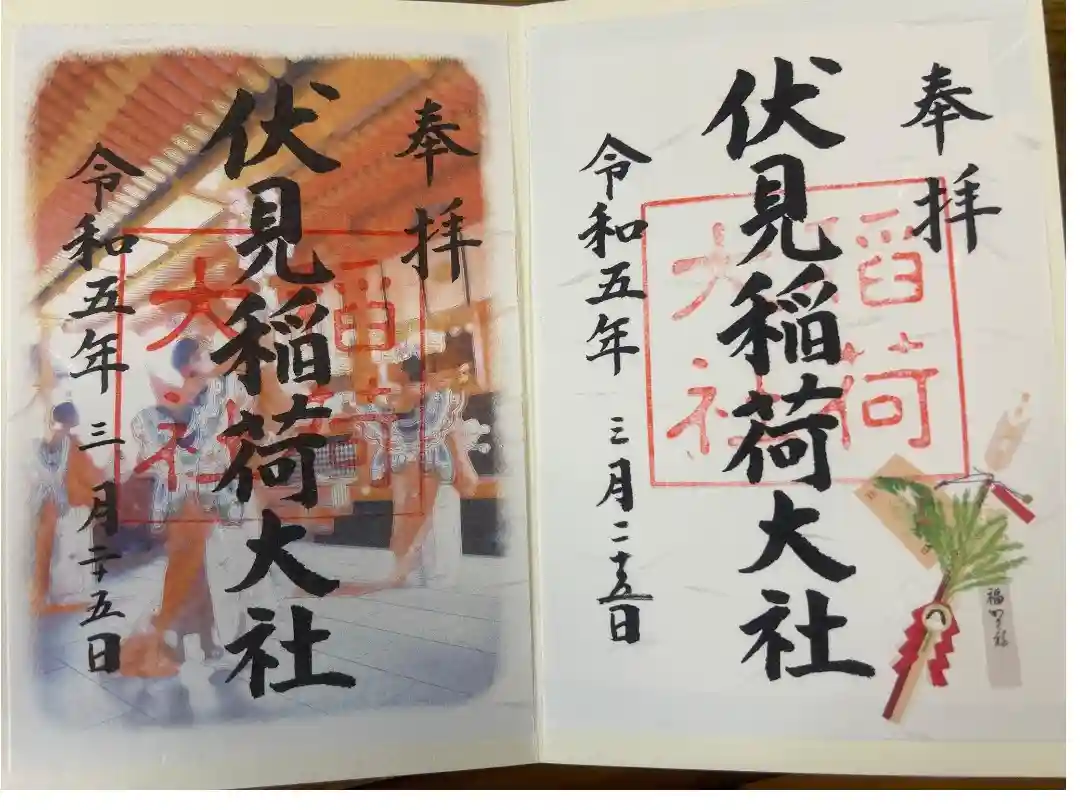 奉拝
伏見稲荷大社
稲荷
大社
令和五年三月二十五日
奉拝
伏見稲荷大社
稲荷
大社
令和五年三月二十五日